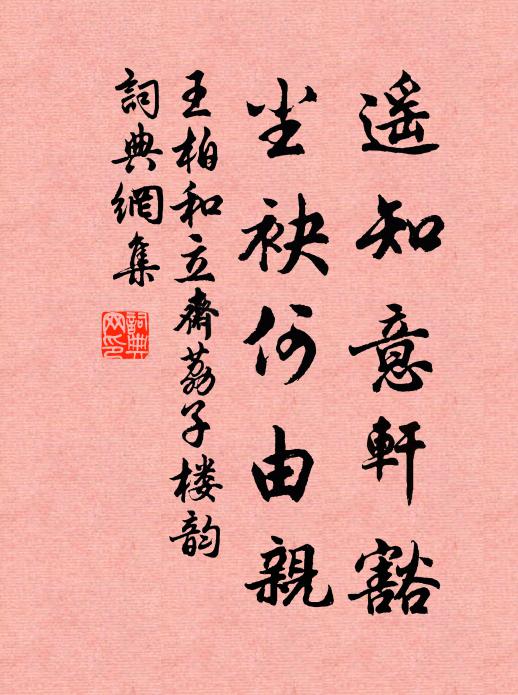 遥知意軒豁
坐袂何由親
王柏和立齋荔子楼韵
詞典網集
詞典网印